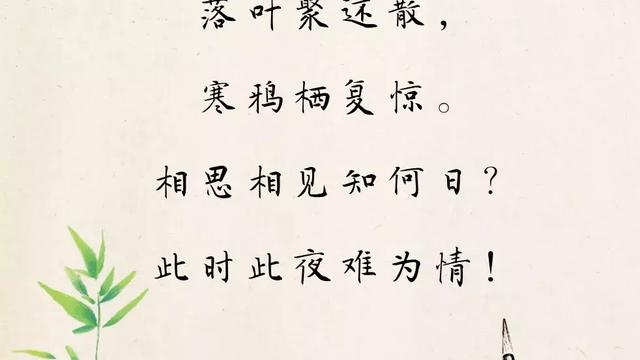 落叶聚还散，
寒鸦栖复惊。
相思相见知何日？
此时此夜难为情！